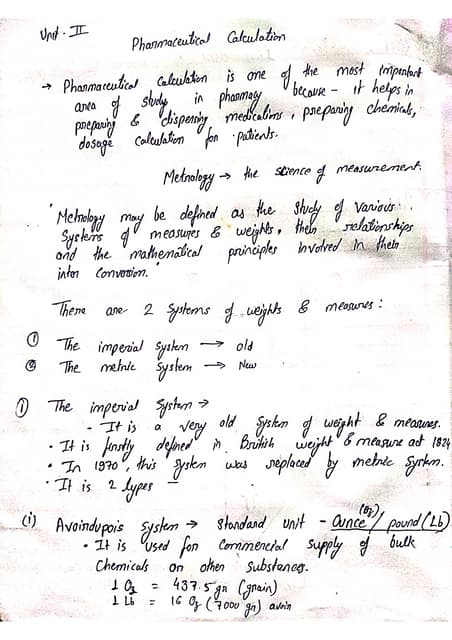 Unit - II
Pharmaceutical Calculation
→ Pharmaceutical Calculation is one of the most important
area of study in pharmacy because - it helps in
preparing & dispensing medications, preparing chemicals,
dosage calculation for patients.
Metrology → the science of measurement.
"Metrology may be defined as the Study of Various
Systems of measures & weights, their relationships
and the mathematical principles involved in their
inter conversion."
There are 2 systems of weights & measures :
① The imperial system → old
② The metric system → New
① The imperial System →
- It is a very old System of weight & measures.
• It is firstly defined in British weight & measure act 1824
• In 1970, this system was replaced by metric System.
• It is 2 types -
(i) Avoirdupois system → Standard unit - Ounce (Oz) / pound (Lb)
• It is used for commercial supply of bulk
Chemicals or other substances.
1 Oz = 437.5 gn (grain)
1 Lb = 16 Oz (7000 gn) avoir